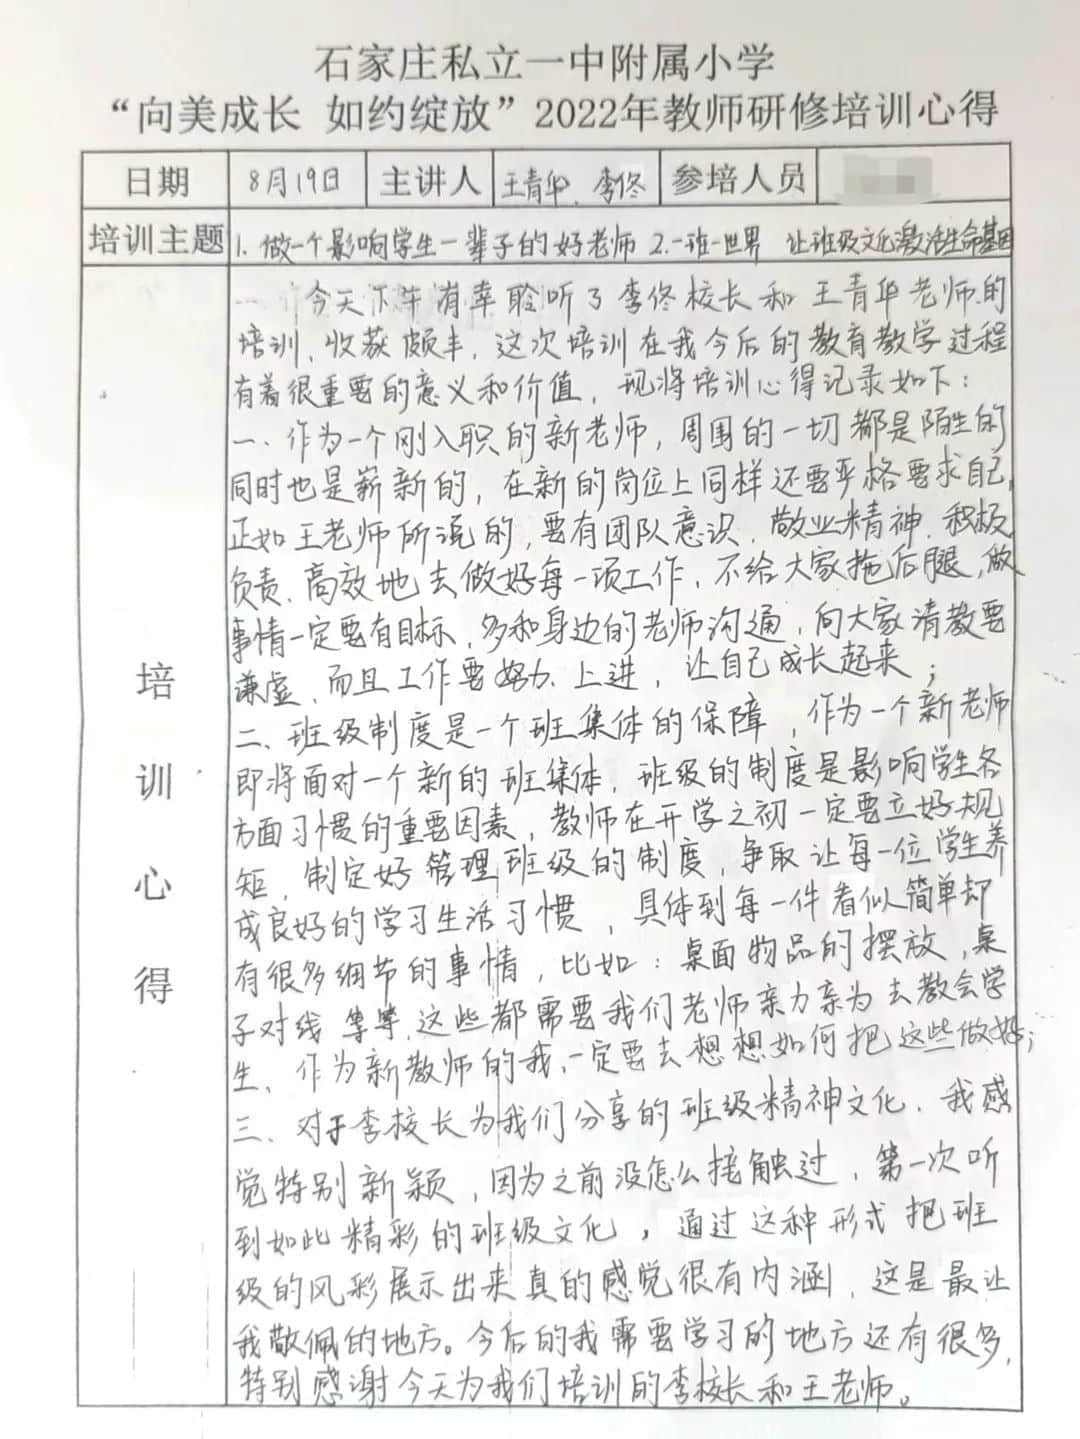 石家庄私立一中附属小学
“向美成长 如约绽放”2022年教师研修培训心得
日期 8月19日 主讲人 王青华、李佟 参培人员
培训主题 1. 做一个影响学生一辈子的好老师 2.一班一世界 让班级文化激活生命基因
培训心得
今天下午有幸聆听了李佟校长和王青华老师的
培训、收获颇丰，这次培训在我今后的教育教学过程
有着很重要的意义和价值，现将培训心得记录如下：
一、作为一个刚入职的新老师，周围的一切都是陌生的
同时也是崭新的，在新的岗位上同样还要严格要求自己，
正如王老师所说的，要有团队意识、敬业精神、积极
负责、高效地去做好每一项工作，不给大家拖后腿，做
事情一定要有目标，多和身边的老师沟通，向大家请教要
谦虚，而且工作要努力、上进，让自己成长起来；
二、班级制度是一个班集体的保障，作为一个新老师
即将面对一个新的班集体，班级的制度是影响学生各
方面习惯的重要因素，教师在开学之初一定要立好规
矩，制定好管理班级的制度，争取让每一位学生养
成良好的学习生活习惯，具体到每一件看似简单却
有很多细节的事情，比如：桌面物品的摆放，桌
子对线等等，这些都需要我们老师亲力亲为去教会学
生、作为新教师的我，一定要去想想如何把这些做好；
三、对于李校长为我们分享的班级精神文化，我感
觉特别新颖，因为之前没怎么接触过，第一次听
到如此精彩的班级文化，通过这种形式把班
级的风彩展示出来真的感觉很有内涵，这是最让
我敬佩的地方。今后的我需要学习的地方还有很多，
特别感谢今天为我们培训的李校长和王老师。